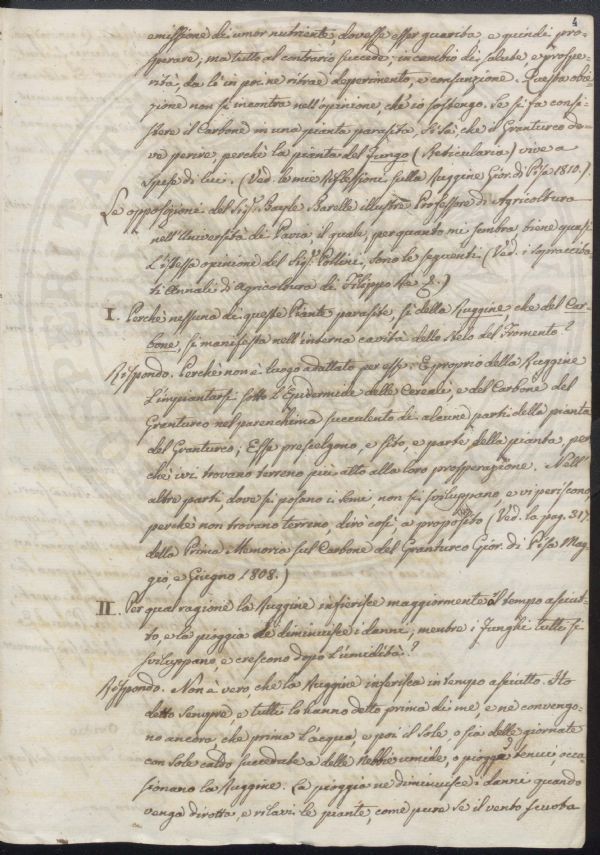 4
emissione di umor nutriente, dovesse esser guarita, e quindi pro-
sperare; ma tutto al contrario succede, in cambio di salute, e prospe-
rità, da lì in poi ne ritrae deperimento, e consunzione. Questa obie-
zione non si incontra nell'opinione, ch'io sostengo. Se si fa consi-
stere il Carbone in una pianta parasita, si sà, che il Granturco de-
ve perire, perchè la pianta del Fungo (Reticularia) vive a
spese di lui. (Ved. le mie Riflessioni sulla Ruggine Gior. di Pisa 1810.)
Le opposizioni del Sig.r Bayle Barelle illustre Professore di Agricoltura
nell'Università di Pavia il quale, per quanto mi sembra, tiene quasi
l'istessa opinione del Sig.r Pollini, sono le seguenti (Ved. i sopraccita-
ti Annali di Agricoltura di Filippo Re &.)
I. Perchè nessuna di queste Piante parasite, sì della Ruggine che del Car-
bone, si manifesta nell'interna cavità dello stelo del Fromento?
Rispondo. Perchè non è luogo adattato per esse. È proprio della Ruggine
l'impiantarsi sotto l'Epidermide delle Cereali, e del Carbone del
Granturco nel parenchima succulento di alcune parti della pianta
del Granturco; Esse prescelgono, e sito, e parte della pianta, per-
chè ivi trovano terreno più atto alla loro prosperazione. Nell'
altre parti, dove si posano i semi, non si sviluppano, e vi periscono,
perchè non trovano terreno, dirò così a proposito (Ved. la pag. 317.
della Prima Memoria sul Carbone del Granturco Gior. di Pisa Mag-
gio, e Giugno 1808.)
II. Per qual ragione la Ruggine inferisce maggiormente il tempo asciut-
to, e la pioggia ne diminuisce i danni, mentre i Funghi tutti si
sviluppano, e crescono dopo l'umidità?
Rispondo. Non è vero, che la Ruggine inferisca in tempo asciutto. Ho
detto sempre, e tutti lo hanno detto prima di me, e ne convengo-
no ancora, che prima l'acqua, e poi il Sole, o sia delle giornate
con Sole caldo succedute a delle Nebbie umide, o pioggie tenui, occa-
sionano la Ruggine. La pioggia ne diminuisce i danni quando
venga dirotta, e rilavi le piante, come pure se il vento scuota